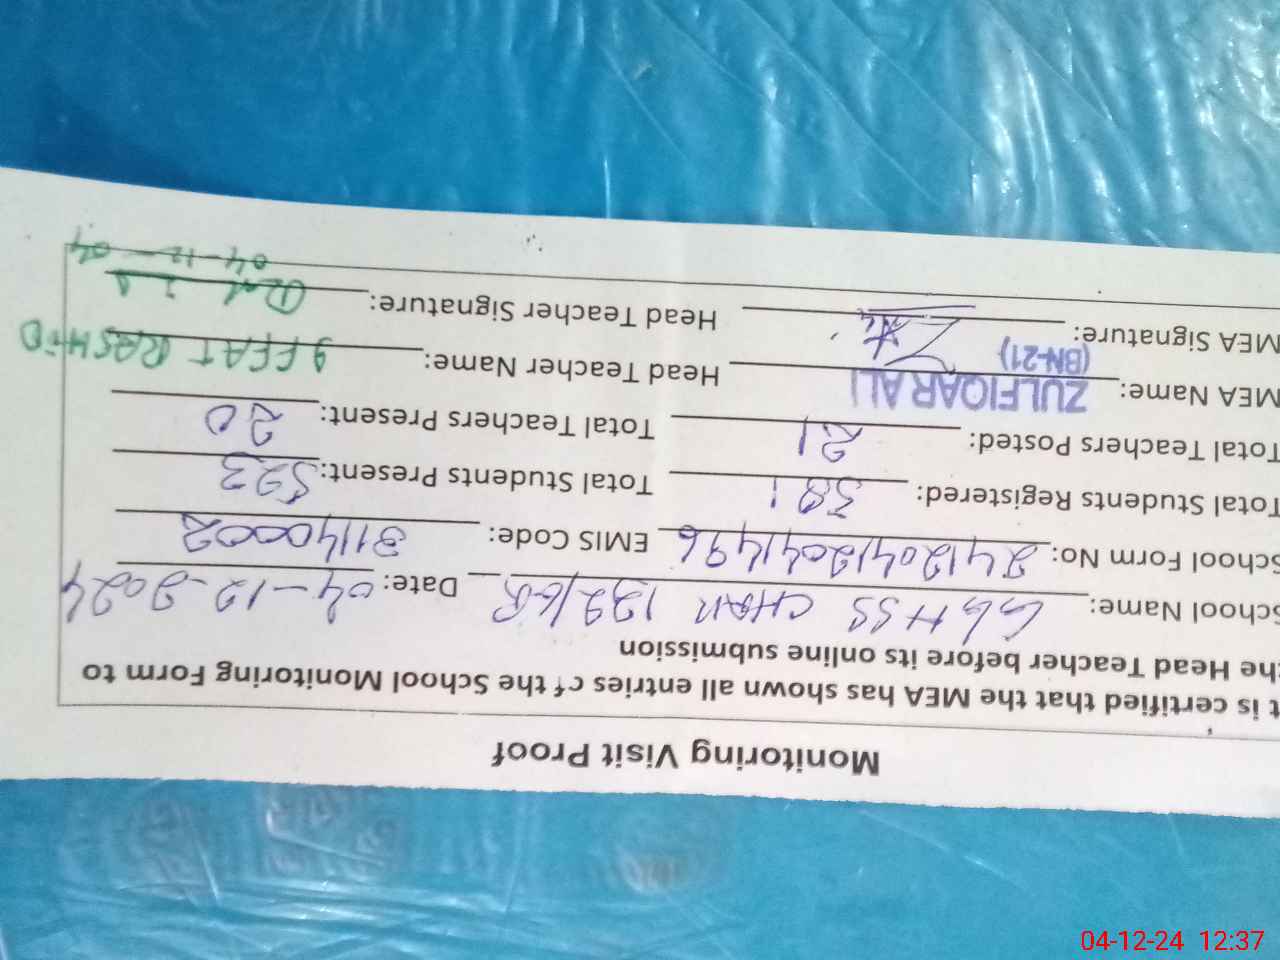 Monitoring Visit Proof
t is certified that the MEA has shown all entries of the School Monitoring Form to
the Head Teacher before its online submission
School Name: GGHSS CHAK 132/6R Date: 04-12-2024
School Form No: 24120412041496 EMIS Code: 31140002
Total Students Registered: 581 Total Students Present: 523
Total Teachers Posted: 21 Total Teachers Present: 20
MEA Name: ZULFIQAR ALI (BN-21) Head Teacher Name: IFFAT RASHID
MEA Signature: Head Teacher Signature:
04-12-
04-12-24 12:37